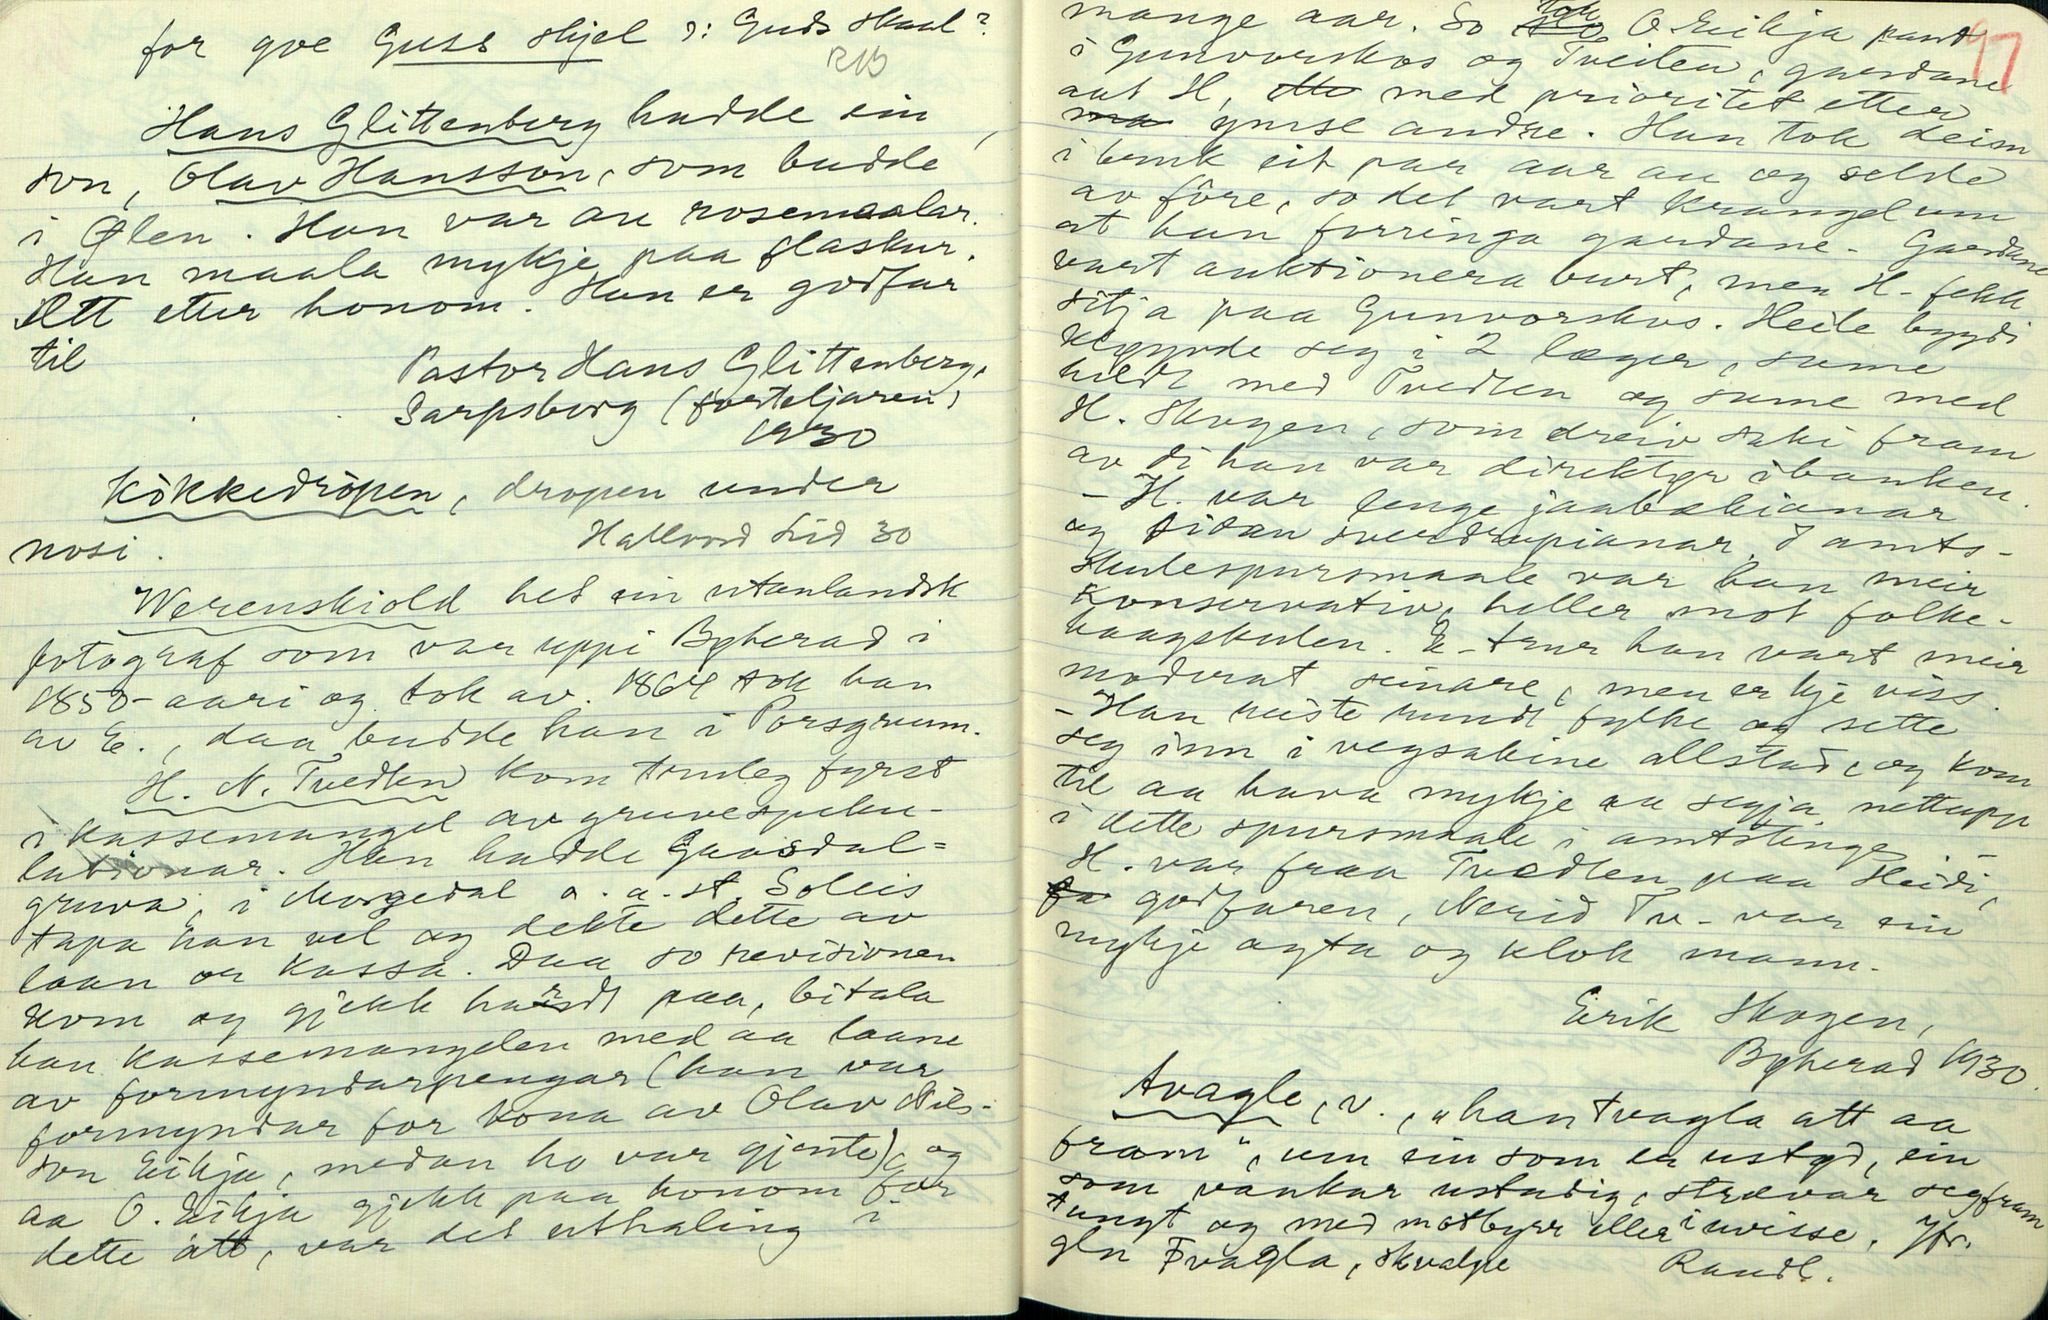 for gve Guss skjel ɔ: Guds Skaal?
RB
Hans Glittenberg hadde ein
son, Olav Hansson, som budde
i Ølen. Han var au rosemaalar.
Han maala mykje paa flaskur.
Ætt etter honom. Han er godfar
til
Pastor Hans Glittenberg,
Sarpsborg (forteljaren)
1930
Kòkkedròpen, dropen under
nosi.
Hallvord Lid 30
Werenskiold het ein utanlandsk
fotograf som var uppi Bøherad i
1850-aari og tok av. 1864 tok han
av E., daa budde han i Porsgrunn.
H. N. Tvedten kom truleg fyrst
i kassemangel av gruvespeku-
lationar. Han hadde Gaasdal-
gruva, i Morgedal o. a. st. Soleis
tapa han vel og dekte dette av
laan or kassa. Daa so revisionen
kom og gjekk hardt paa, bitala
han kassemangelen med aa laane
av formyndarpengar (han var
formyndar for kona av Olav Nils-
son Eikja, medan ho var gjente) og
aa O. Eikja gjekk paa honom for
dette att, var det uthaling i
mange aar. So tok O Eikja pant
i Gunvorskos og Tveiten, gardane
aat H, med prioritet etter
ymse andre. Han tok deim
i bruk eit par aar au og selde
av fôre, so det vart krangel um
at han forringa gardane. Gardane
vart auktionera burt, men H. fekk
sitja paa Gunvorskos. Heile bygdi
skipade seg i 2 læger, sume
heldt med Tvedten og sume med
H. Skogen, som dreiv saki fram
av di han var direktør i banken.
- H. var lenge jaabækianar
og sidan sverdrupianar. I amts-
skulespursmaale var han meir
konservativ, heller mot folke-
haagskulen. E. trur han vart meir
moderat seinare, men er kje viss.
- Han reiste rundt fylke og sette
seg inn i vegsakine allstad, og kom
til aa hava mykje aa segja nettupp
i dette spursmaale i amtstinge.
H. var fraa Tvedten paa Heidi,
godfaren, Nerid Tv- var ein
mykje agta og klok mann.
Erik Skogen,
Bøherad 1930.
tvagle, v., "han tvagla att aa
fram", um ein som er ustød, ein
som vankar ustadig, strævar seg fram
tungt og med motbyrr eller i uvisse. Jfr.
gln tvagla, skvalpe
Raudl.
97